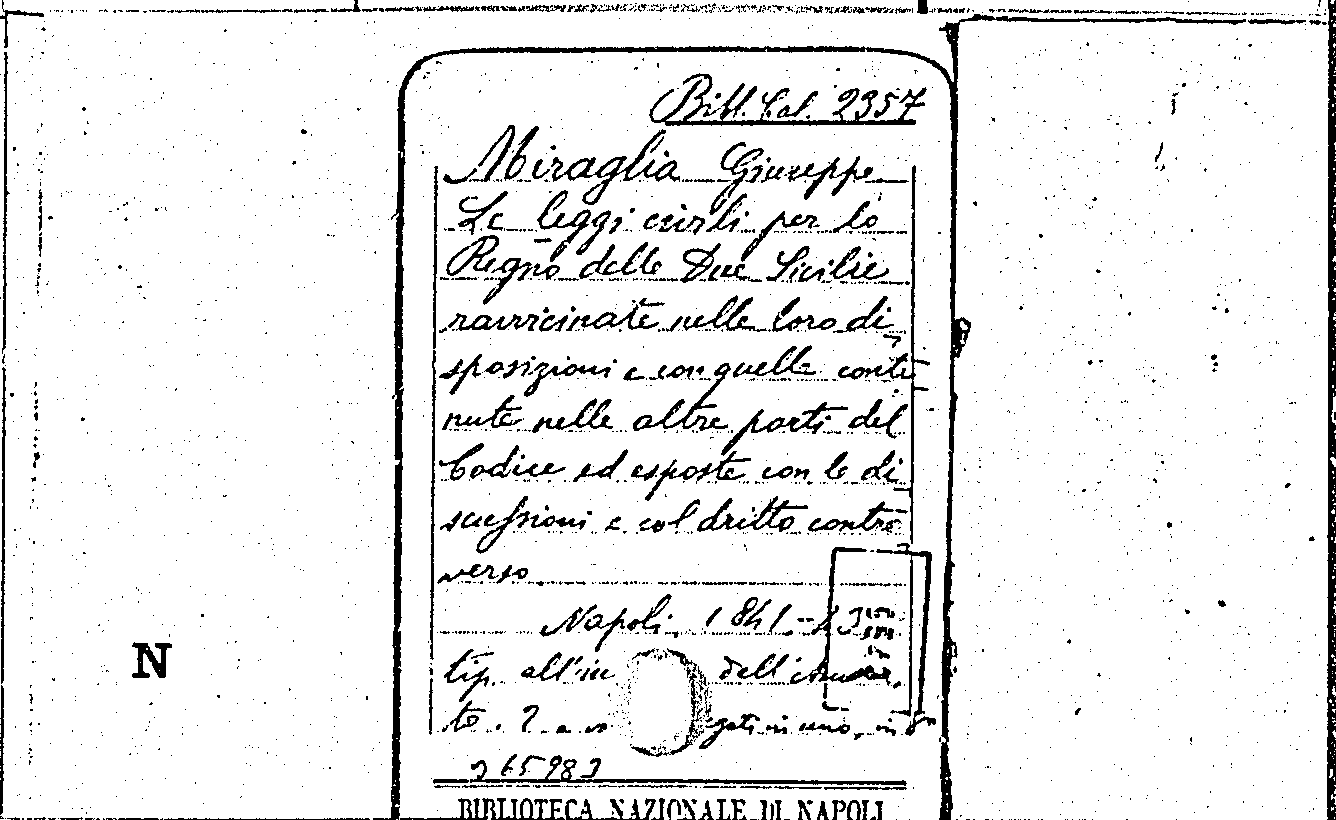 Bibl. Cal. 2357
Miraglia Giuseppe
Le leggi civili per lo
Regno delle Due Sicilie
ravvicinate nelle loro di
sposizioni e con quelle conte
nute nelle altre parti del
Codice ed esposte con le di
scussioni e col dritto contro
verso
Napoli, 1841-43
N
tip. all'in dell'
to. 2 gati in uno, in 8º
265983
BIBLIOTECA NAZIONALE DI NAPOLI